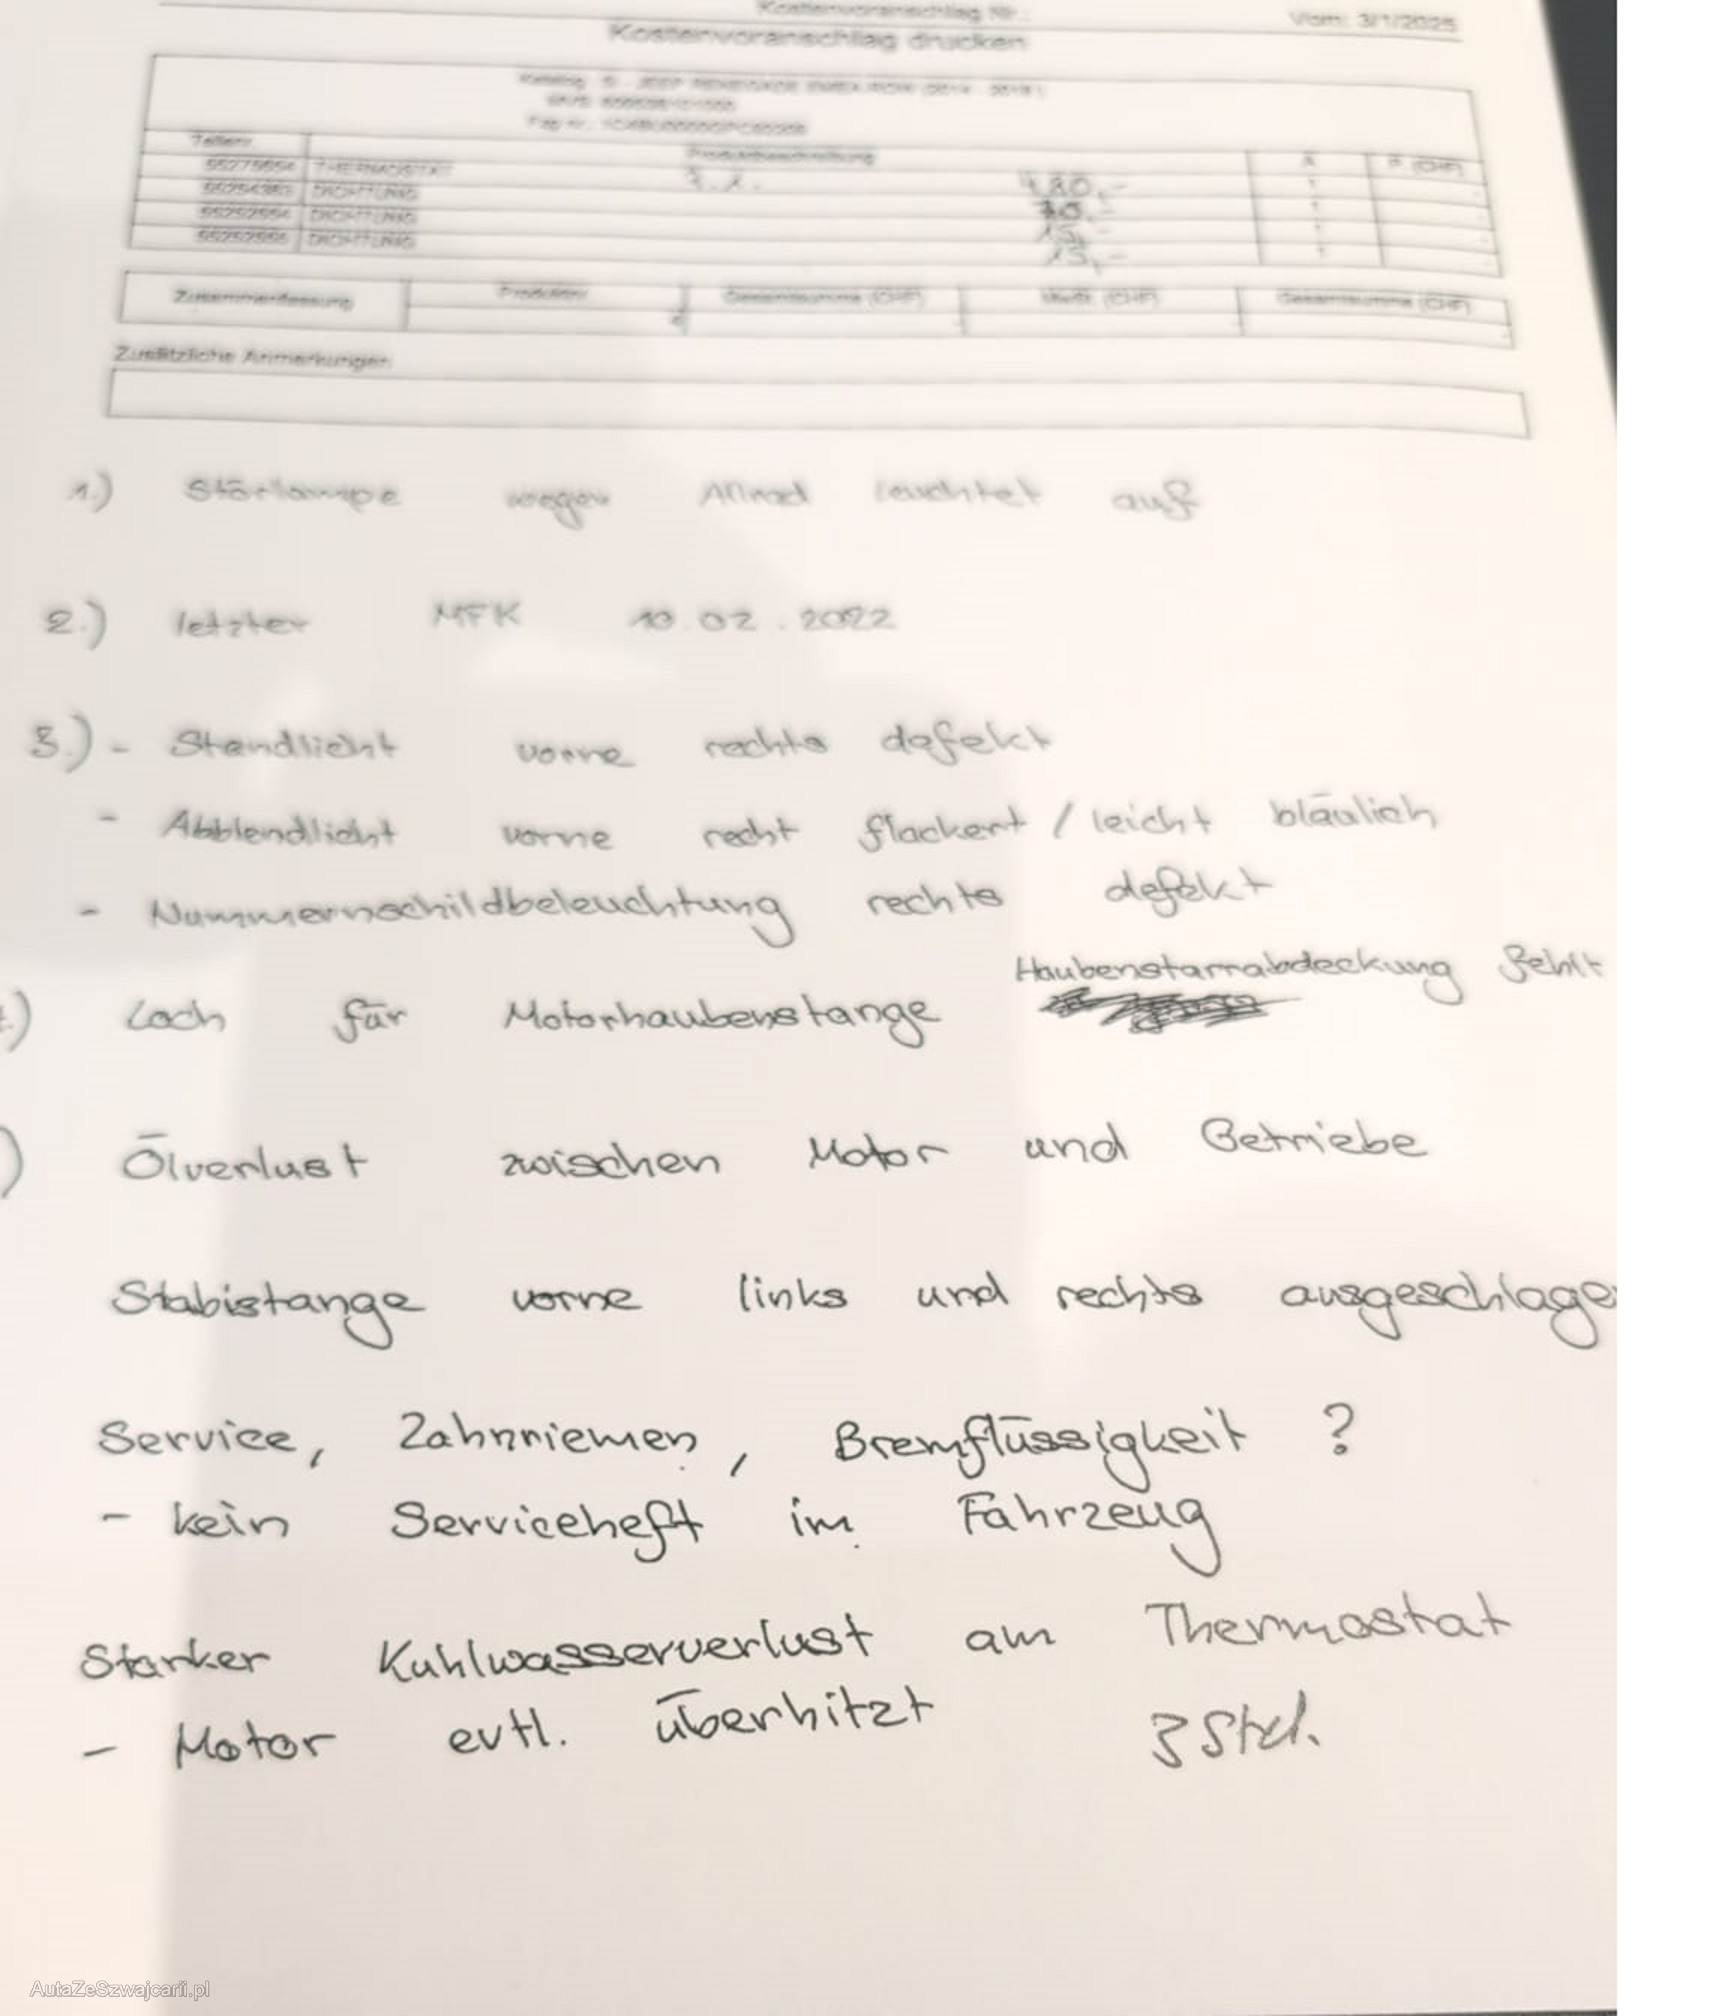 Kostenvoranschlag Nr.:
Vom: 3/1/2025
Kostenvoranschlag drucken
Teilenr. Produktbeschreibung (CHF)
THERMOSTAT
DICHTUNG
DICHTUNG 15,-
DICHTUNG 15,-
Zusammenfassung Produkte Gesamtsumme (CHF) MwSt. (CHF) Gesamtsumme (CHF)
Zusätzliche Anmerkungen
1.) Störlampe wegen Allrad leuchtet auf
2.) letzter MFK 10.02.2022
3.) - Standlicht vorne rechts defekt
- Abblendlicht vorne recht flackert / leicht bläulich
- Nummernschildbeleuchtung rechts defekt
Haubenstarrabdeckung fehlt
) Loch für Motorhaubenstange
) Ölverlust zwischen Motor und Getriebe
Stabistange vorne links und rechts ausgeschlage
Service, Zahnriemen, Bremflüssigkeit ?
- kein Serviceheft im Fahrzeug
Starker Kuhlwasserverlust am Thermostat
- Motor evtl. überhitzt 3 Std.
AutaZeSzwajcarii.pl